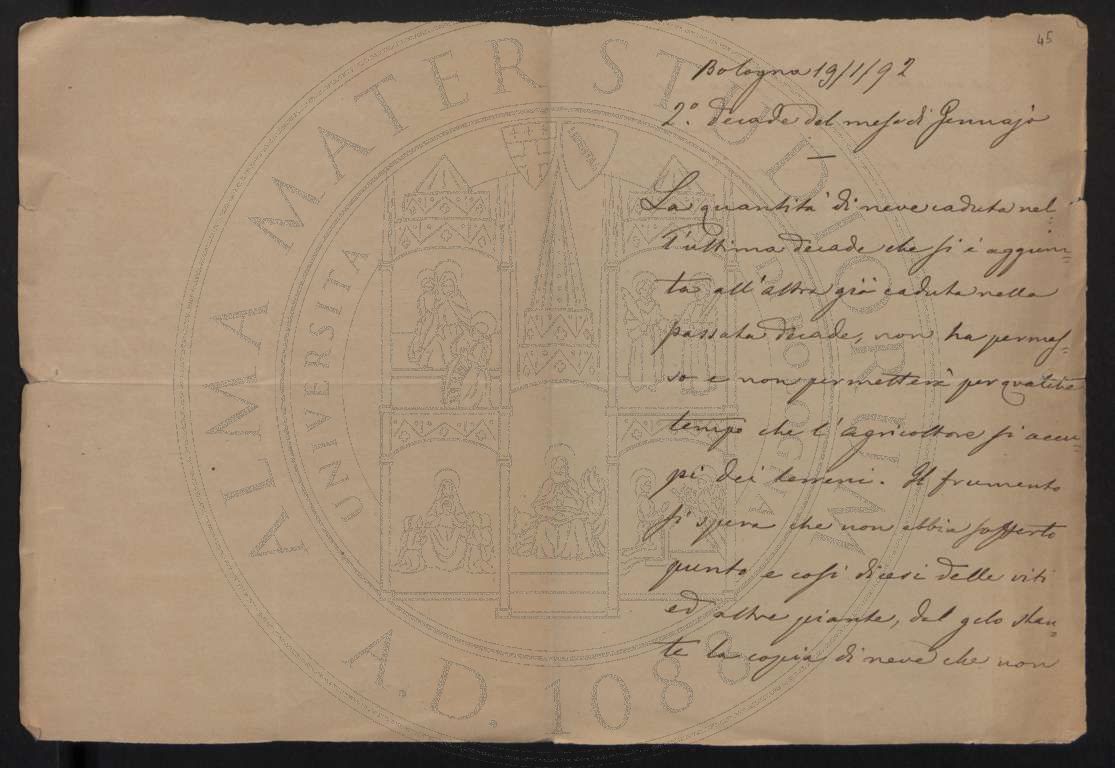 45
Bologna 19/1/92
2ª. decade del mese di Gennajo
La quantità di neve caduta nel
l'ultima decade che si è aggiun=
ta all'altra già caduta nella
passata decade, non ha permes=
so e non permetterà per qualche
tempo che l'agricoltore si accu=
pi dei terreni. Il frumento
si spera che non abbia sofferto
punto e così dicesi delle viti
ed altre piante, dal gelo stan=
te la copia di neve che non
ALMA MATER STUDIORUM
UNIVERSITA
A.D. 1088